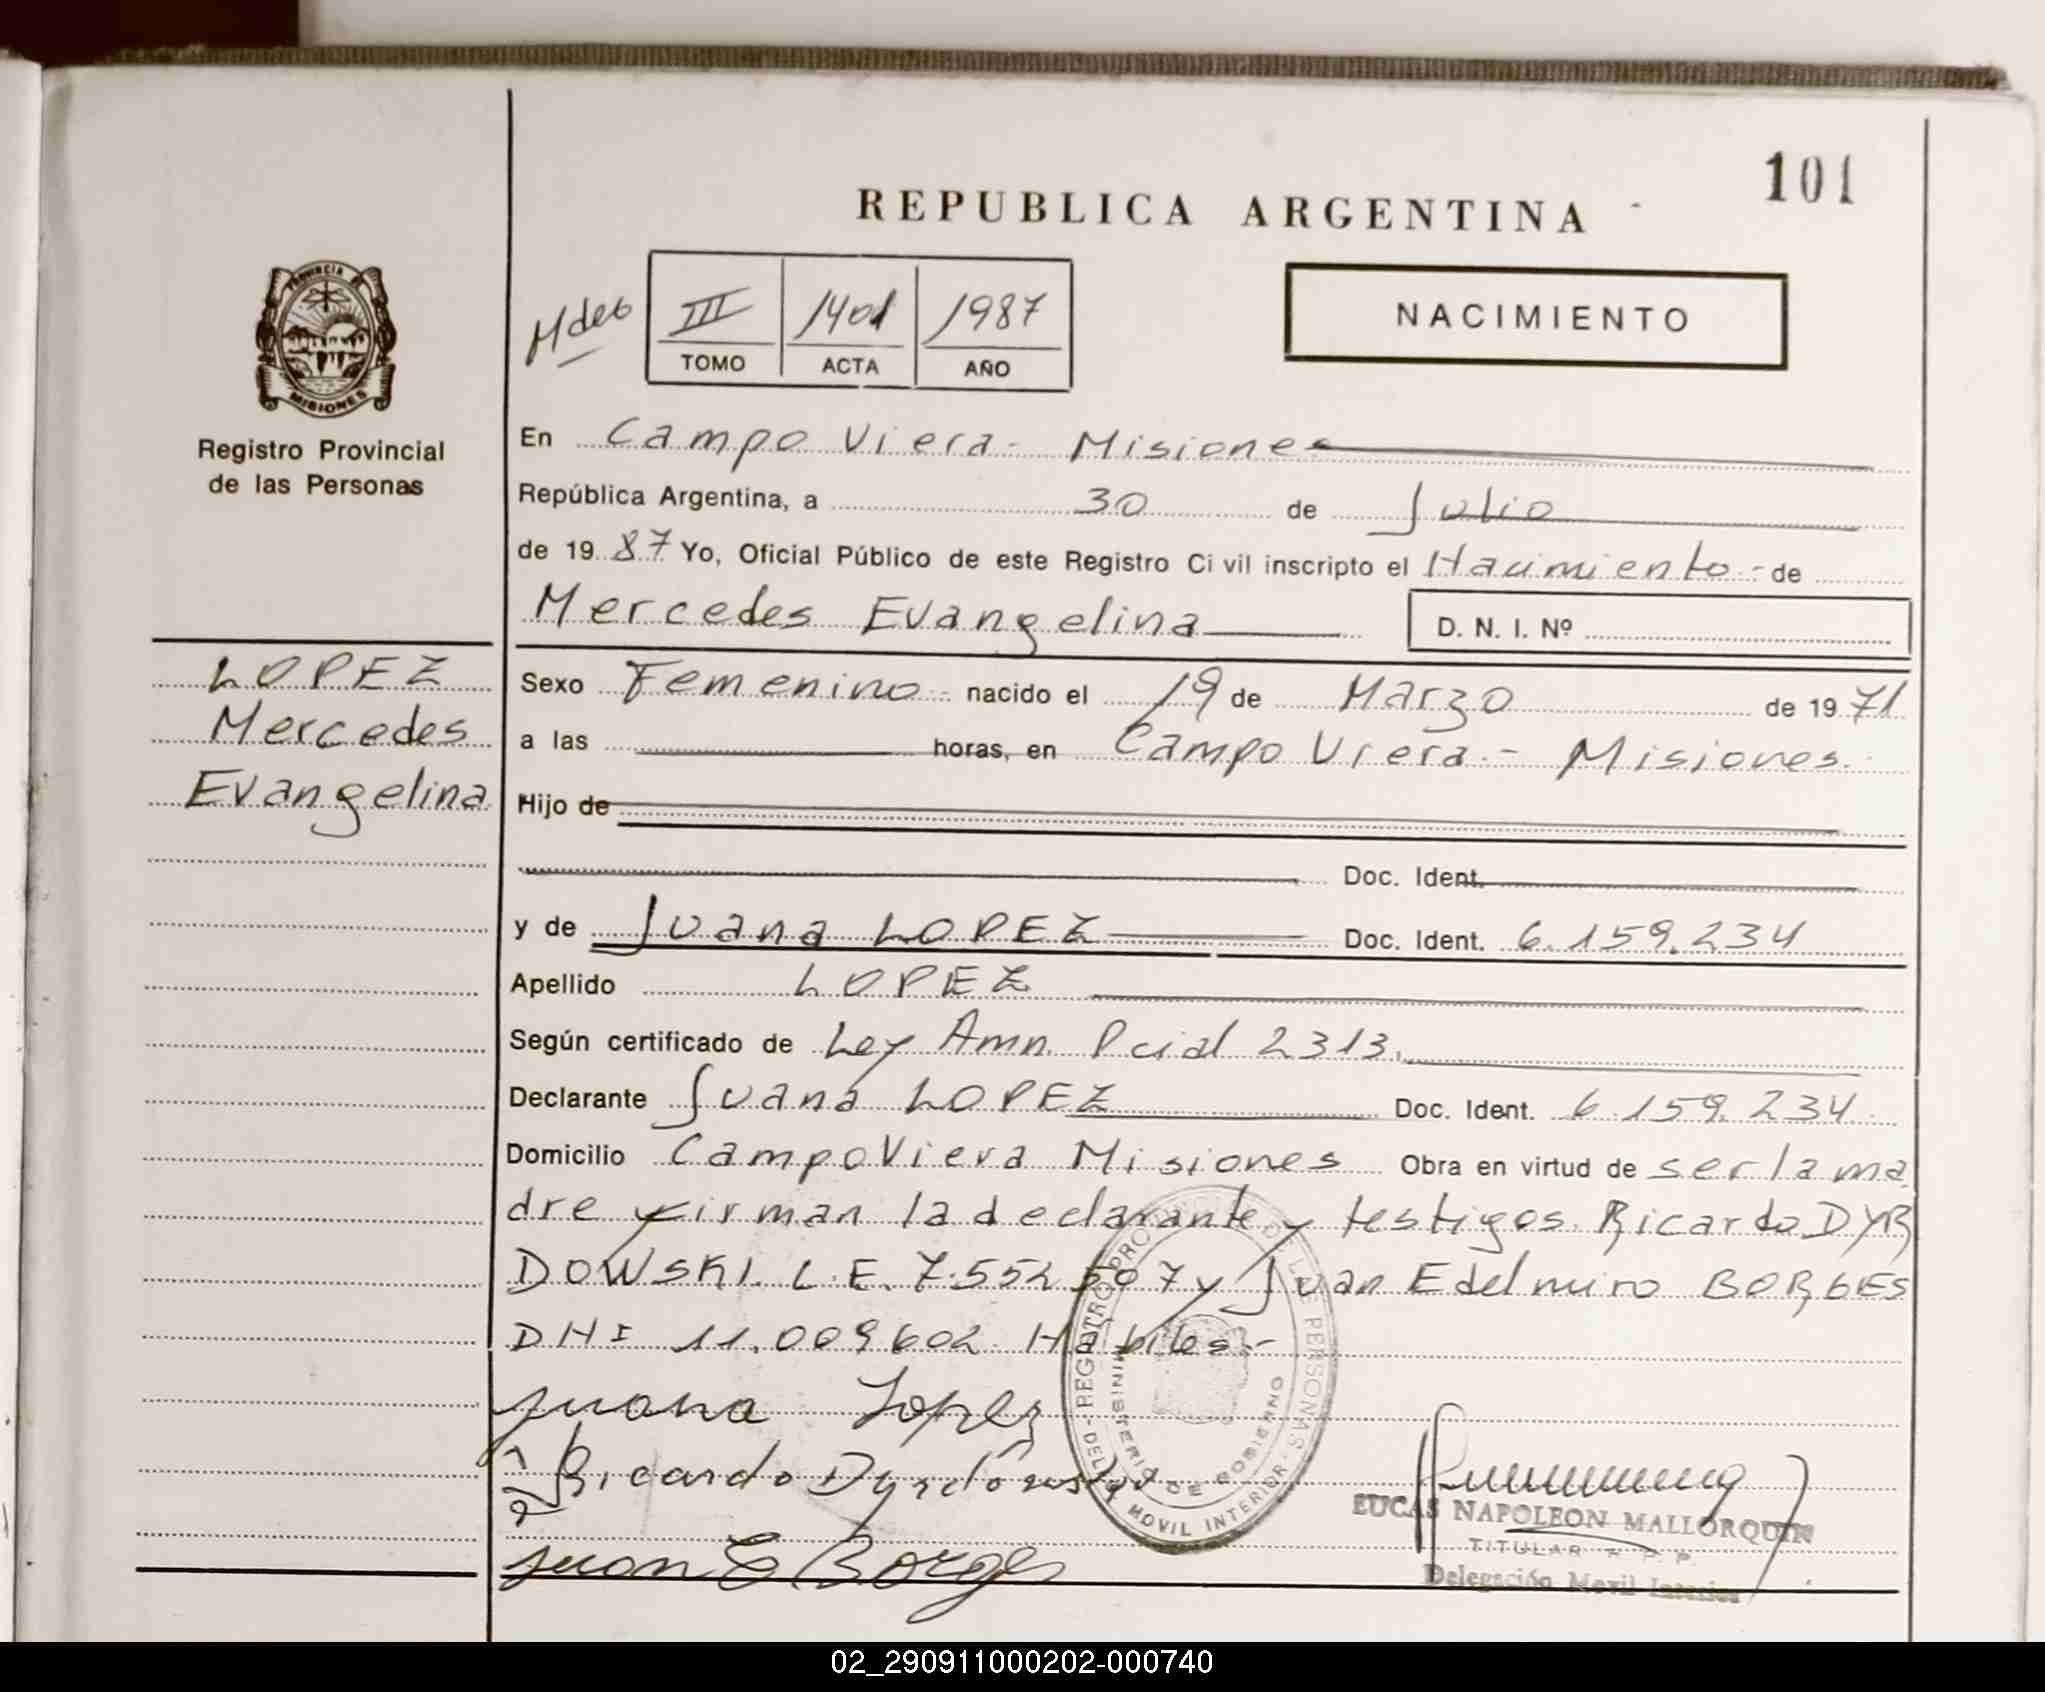 101
REPUBLICA ARGENTINA
PROVINCIA DE
MISIONES
Registro Provincial
de las Personas
III 1401 1987
TOMO ACTA AÑO
NACIMIENTO
En Campo Viera - Misiones
República Argentina, a 30 de Julio
de 1987 Yo, Oficial Público de este Registro Civil inscripto el Nacimiento - de
Mercedes Evangelina D. N. I. Nº
LOPEZ
Mercedes
Evangelina
Sexo Femenino - nacido el 19 de Marzo de 1971
a las horas, en Campo Viera - Misiones.
Hijo de
Doc. Ident.
y de Juana LOPEZ Doc. Ident. 6.159.234
Apellido LOPEZ
Según certificado de Ley Amn. Pcial 2313.
Declarante Juana LOPEZ Doc. Ident. 6.159.234.
Domicilio Campo Viera Misiones Obra en virtud de ser la ma
dre y firman la declarante y testigos Ricardo DYR
DOWSKI L.E. 7.552507 y Juan Edelmiro BORGES
DNI 11.009602 Habiles.-
Juana Lopez
Ricardo Dyrdowski
Juan E Borges
REGISTRO PROVINCIAL DE LAS PERSONAS
MINISTERIO DE GOBIERNO
MOVIL INTERIOR
LUCAS NAPOLEON MALLORQUIN
TITULAR
Delegación Movil Interior
02_290911000202-000740